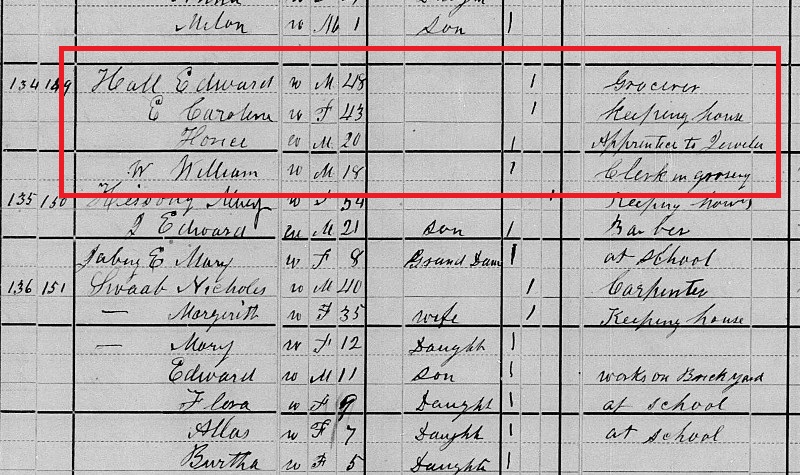 Milon w M 1 Son 1
134 149 Hall Edward w M 48 1 Grocerer
E Caroline w F 43 1 Keeping house
Horice w M 20 1 Apprentice to Jeweler
W William w M 18 1 Clerk in grocery
135 150 Mary w F 54 1 Keeping house
J Edward w M 21 Son 1 Barber
E Mary w F 8 Grand Dau 1 at school
136 151 Swaab Nicholes w M 40 1 Carpenter
— Margerith w F 35 wife 1 Keeping house
— Mary w F 12 Daught 1
Edward w M 11 Son 1 works on Brickyard
Flora w F 9 Daught 1 at school
Allas w F 7 Daught 1 at school
Burtha w F 5 Daught 1